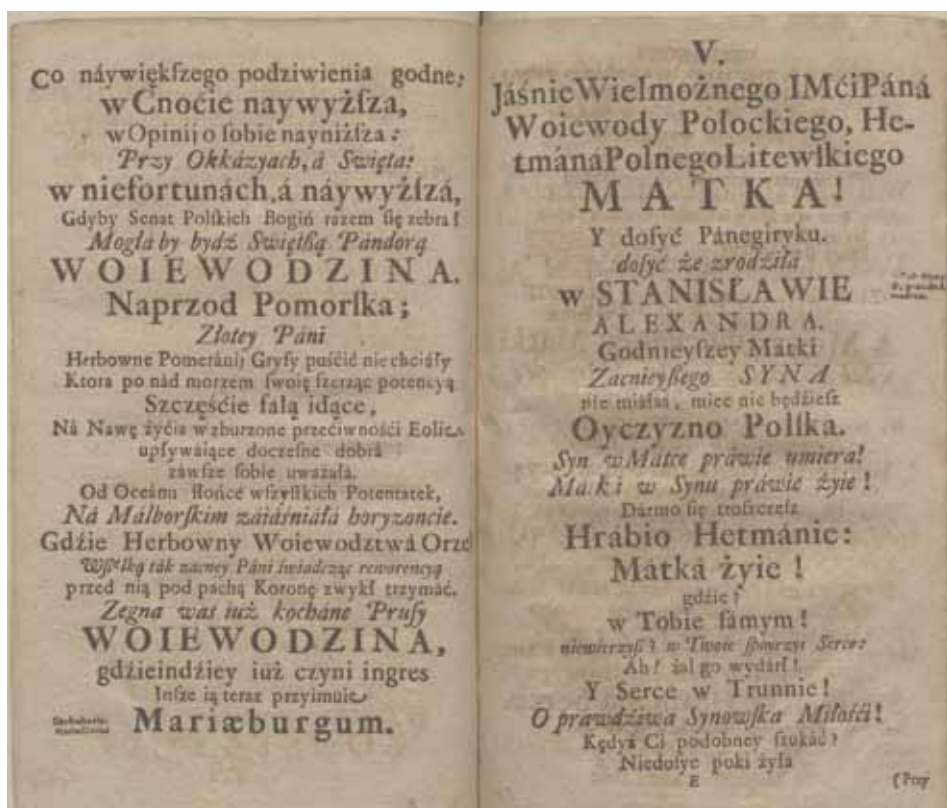 Co náywiękſzego podziwienia godne;
w Cnoćie naywyżſza,
w Opinij o ſobie nayniżſza:
Przy Okkázyach, á Swięta:
w niefortunách, á náywyżſzá,
Gdyby Senat Polſkich Bogiń razem ſię zebra!
Mogła by bydź Swiętßą Pándorą
WOIEWODZINA.
Naprzod Pomorſka;
Złotey Páni
Herbowne Pomeránij Gryfy puśćić nie chciáły
Ktora po nád morzem ſwoię ſzerząc potencyą
Szczęśćie falą idące,
Ná Nawę żyćia wzburzone przećiwnośći Eolie
upływáiące doczeſne dobrá
záwſze ſobie uważałá.
Od Oceánu ſłońce wſzyſtkich Potentatek,
Ná Malborſkim záiáśniałá horyzoncie.
Gdźie Herbowny Woiewodztwá Orzeł
Wßelką ták zacney Páni świadcząc rewerencyą
przed nią pod pachą Koronę zwykł trzymáć.
Zegna was iuż kochane Pruſy
WOIEWODZINA,
gdźieindźiey iuż czyni ingres
Inſze ią teraz przyimuie
Mariæburgum.
V.
JáśnieWielmożnego IMćiPáná
Woiewody Polockiego, He-
tmánáPolnegoLitewſkiego
MATKA!
Y doſyć Pánegiryku.
doſyć że zrodźiłá
w STANISŁAWIE
ALEXANDRA.
Godnieyſzey Matki
Zacnieyßego SYNA
nie miałaś, mieć nie będźieſz
Oyczyzno Polſka.
Syn w Matce práwie umiera!
Matki w Synu práwie żyie!
Dármo ſię troſzczeſz
Hrábio Hetmánie:
Mátká żyie!
gdźie?
w Tobie ſámym!
niewierzyß? w Twoie ſpoyrzyi Serce?
Ah! żal go wydárł!
Y Serce w Trunnie!
O prawdźiwa Synowſka Miłośći!
Kędyż Ci podobney ſzukáć?
Niedoſyć poki żyłá
E
(Przy